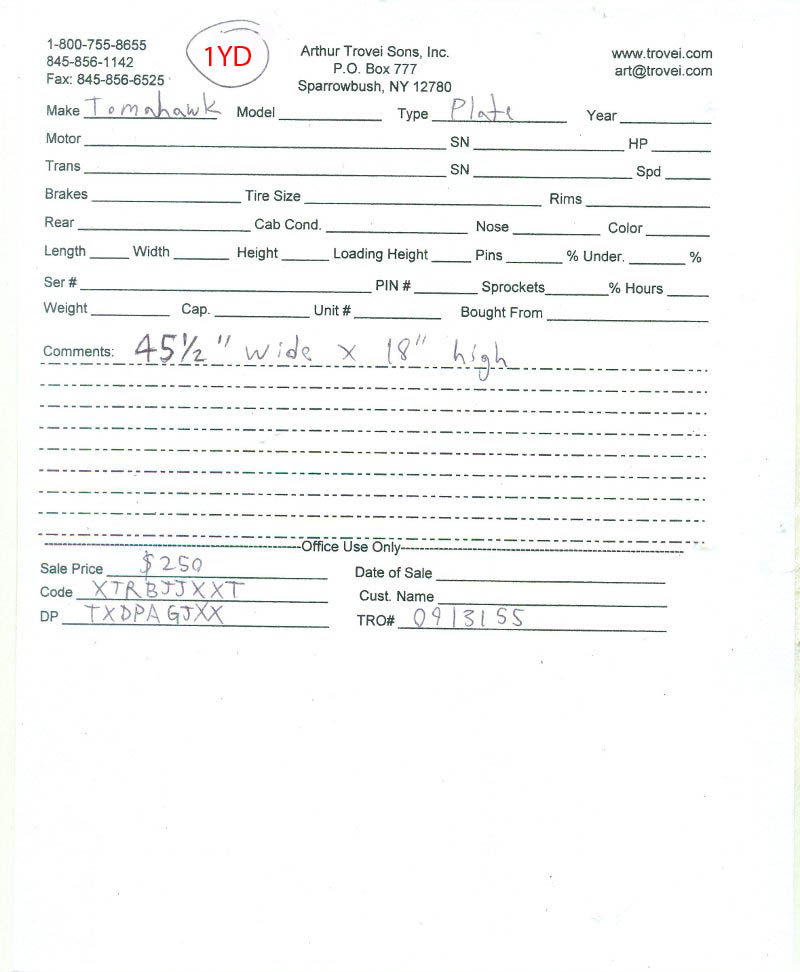 1-800-755-8655
845-856-1142
Fax: 845-856-6525
1YD
Arthur Trovei Sons, Inc.
P.O. Box 777
Sparrowbush, NY 12780
www.trovei.com
art@trovei.com
Make Tomahawk Model Type Plate Year
Motor SN HP
Trans SN Spd
Brakes Tire Size Rims
Rear Cab Cond. Nose Color
Length Width Height Loading Height Pins % Under. %
Ser # PIN # Sprockets % Hours
Weight Cap. Unit # Bought From
Comments: 45½" wide x 18" high
Office Use Only
Sale Price $250 Date of Sale
Code XTRBJJXXT Cust. Name
DP TXDPAGJXX TRO# 0913155